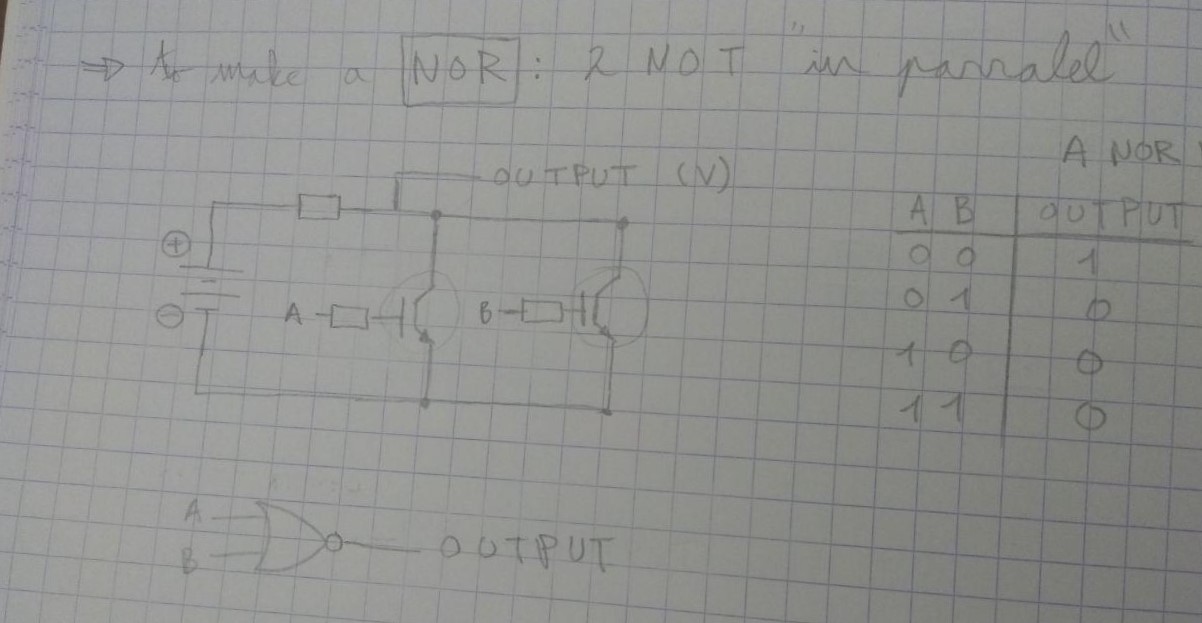 ⇒ to make a NOR : 2 NOT "in parralel"
OUTPUT (V)
A NOR
A B OUTPUT
0 0 1
0 1 0
1 0 0
1 1 0
+
-
A
B
A
B
OUTPUT